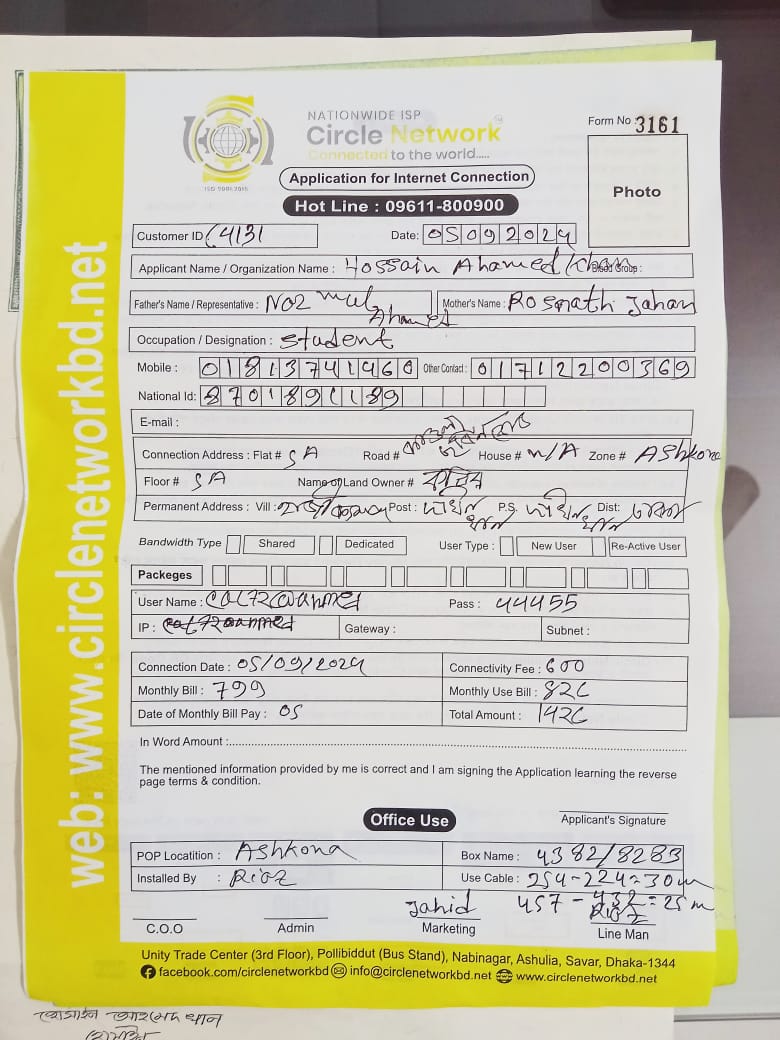 NATIONWIDE ISP
Circle Network
Connected to the world.....
ISO 9001:2015
Form No : 3161
Photo
Application for Internet Connection
Hot Line : 09611-800900
Customer ID 4131
Date: 05092024
Applicant Name / Organization Name : Hossain Ahamed Khan Blood Group :
Father's Name / Representative : Ahamed
Mother's Name : Jahan
Occupation / Designation : Student
Mobile : 01813741460 Other Contact : 01712200369
National Id: 8701891189
E-mail :
Connection Address : Flat # 5A Road # House # N/A Zone # Ashkona
Floor # 5A Name of Land Owner #
Permanent Address : Vill : Post : P.S. Dist: ঢাকা
Bandwidth Type Shared Dedicated User Type : New User Re-Active User
Packeges
User Name : Pass : 44455
IP : Gateway : Subnet :
Connection Date : 05/09/2024 Connectivity Fee : 600
Monthly Bill : 799 Monthly Use Bill : 826
Date of Monthly Bill Pay : 05 Total Amount : 1426
In Word Amount :
The mentioned information provided by me is correct and I am signing the Application learning the reverse
page terms & condition.
Applicant's Signature
Office Use
POP Locatition : Ashkona Box Name : 4382/8283
Installed By : Use Cable : 254-224=30m
Jahid 457 - 432=25m
C.O.O Admin Marketing Line Man
Unity Trade Center (3rd Floor), Pollibiddut (Bus Stand), Nabinagar, Ashulia, Savar, Dhaka-1344
facebook.com/circlenetworkbd info@circlenetworkbd.net www.circlenetworkbd.net
web: www.circlenetworkbd.net
হোসাইন আহমেদ খান